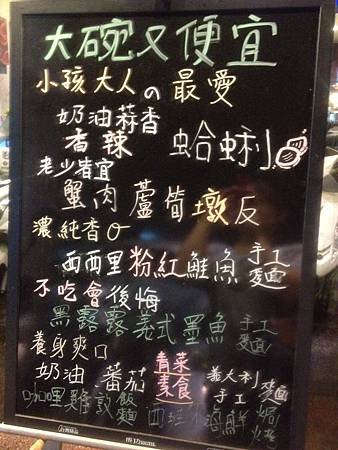 大碗又便宜
小孩大人の最愛
奶油蒜香
香辣 蛤蜊
老少皆宜
蟹肉蘆筍墩反
濃純香
西西里粉紅鮭魚手工麵
不吃會後悔
黑露露義式墨魚手工麵
養身爽口
奶油 蕃茄 青菜素食 義大利手工麵
咖哩雞敦飯麵 西班牙海鮮焗烤